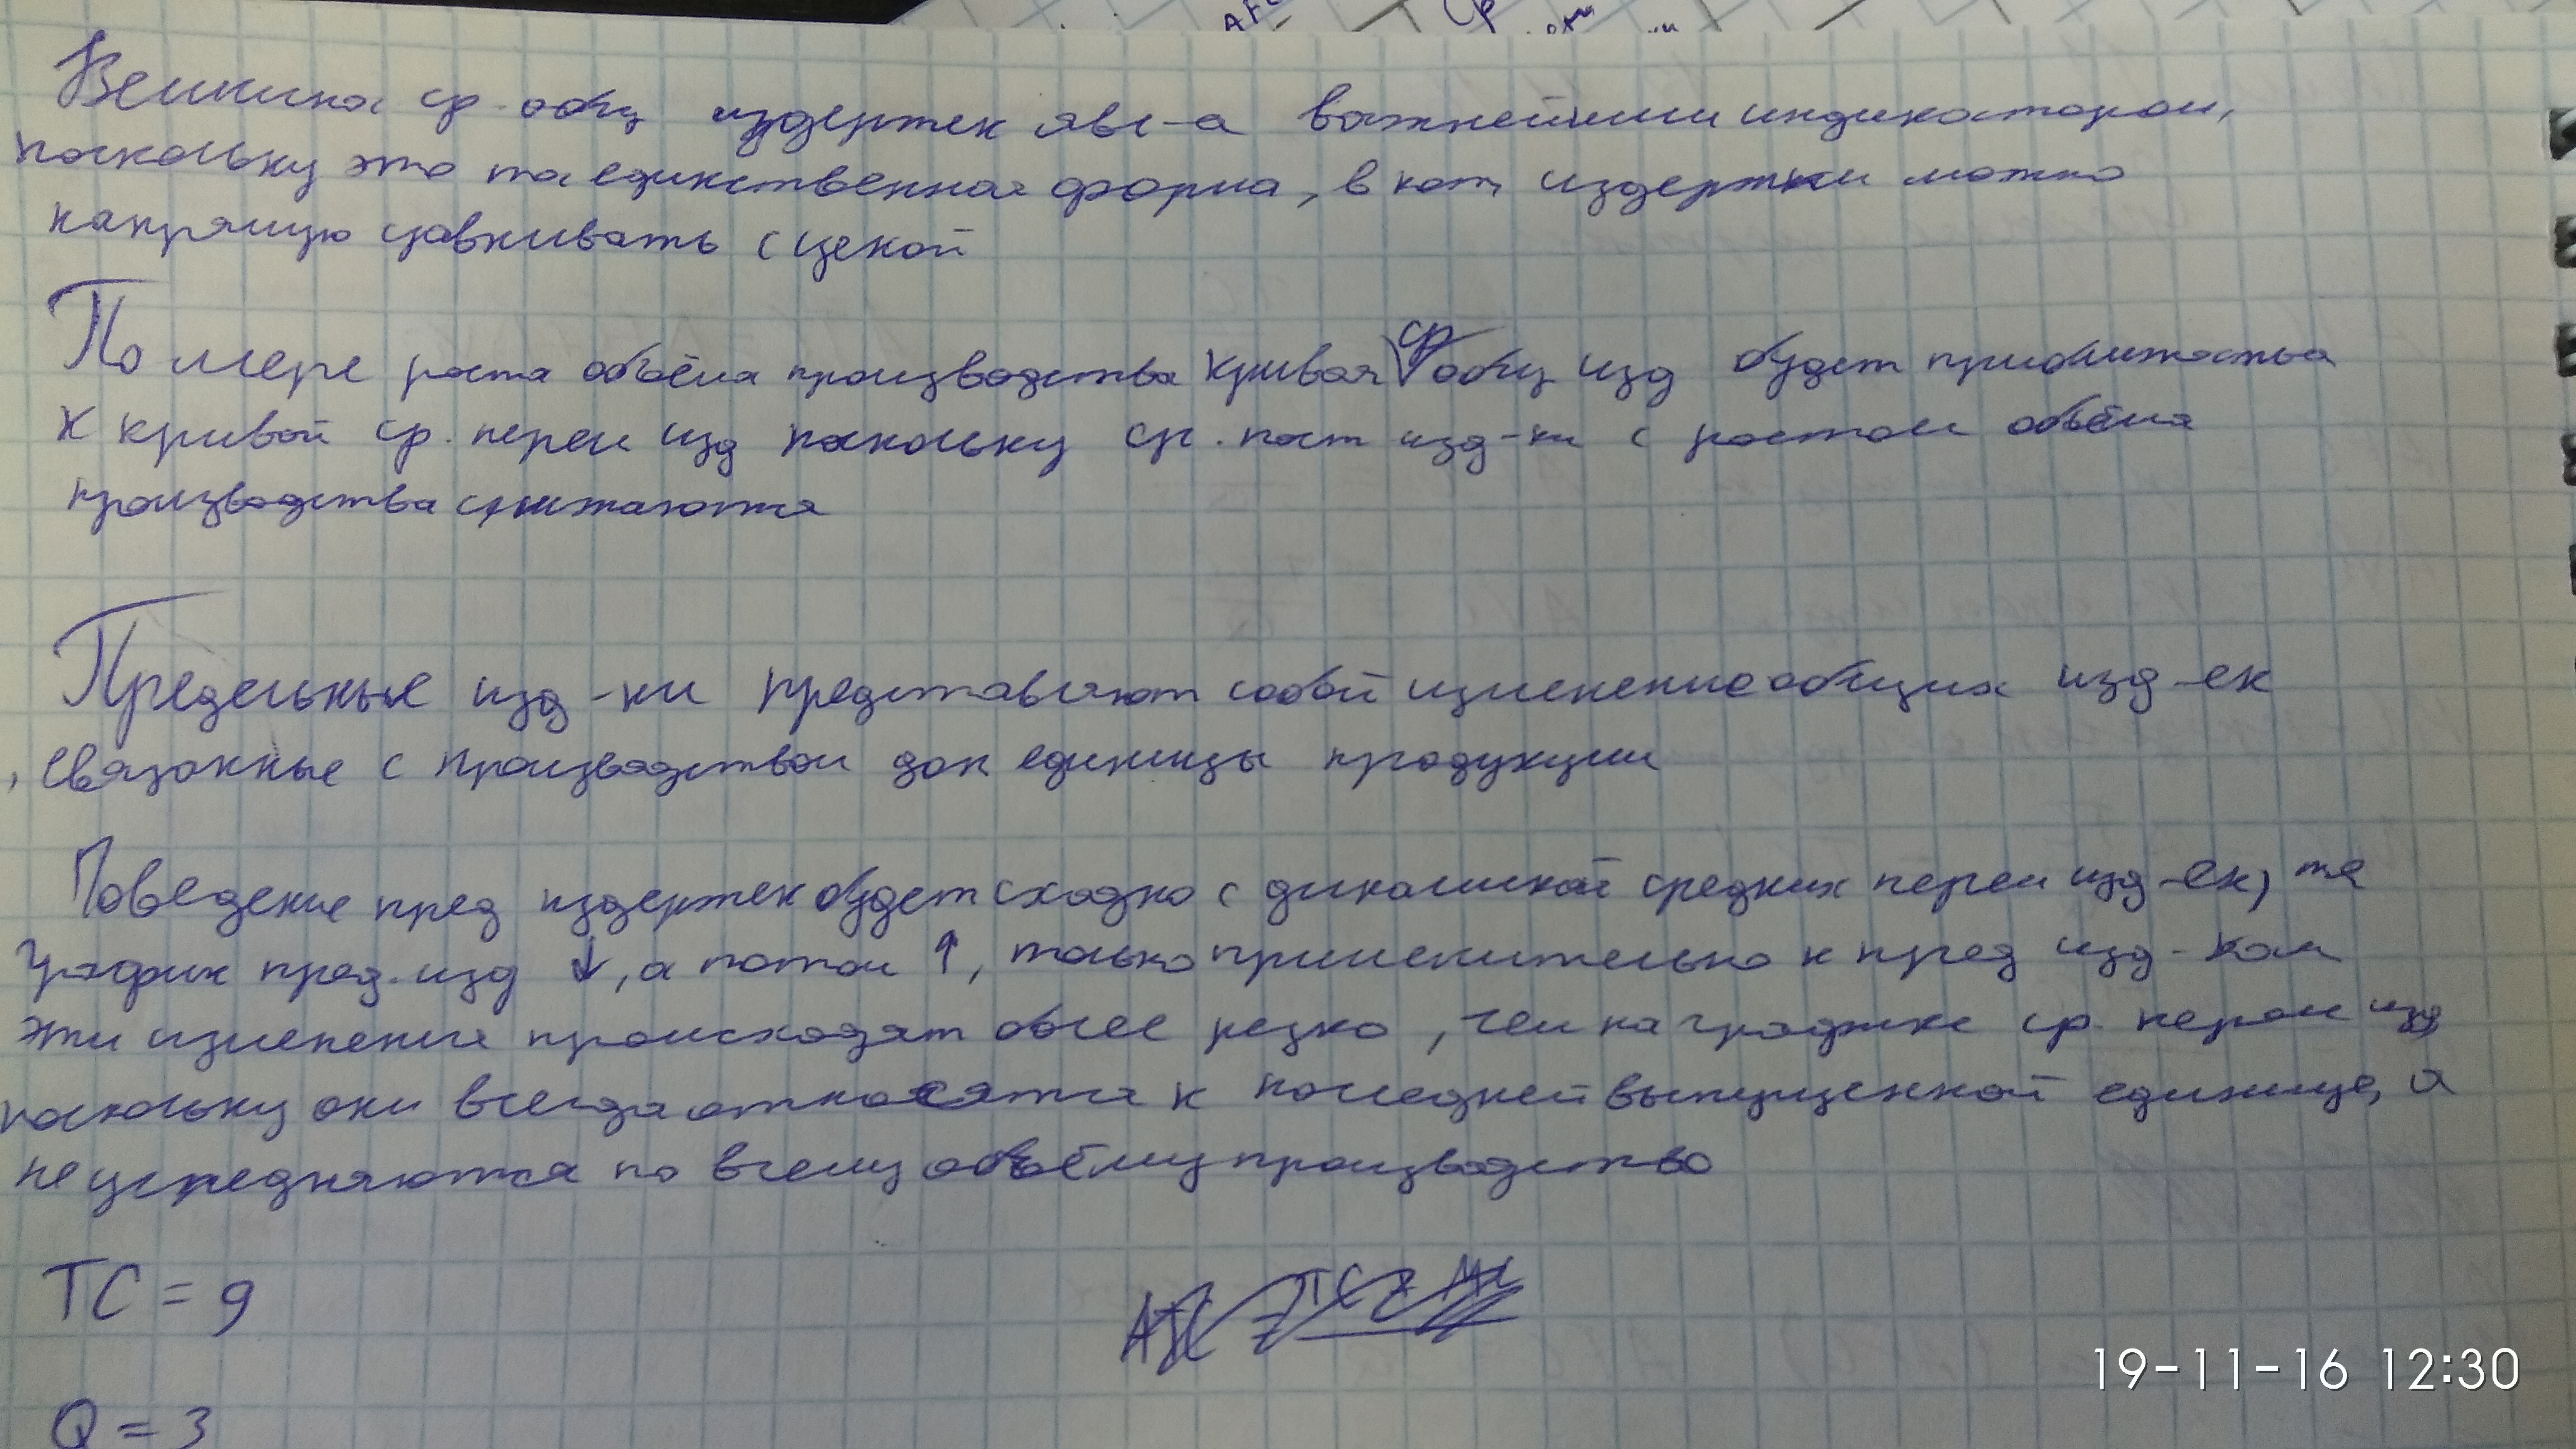 AFC
Величина ср. общ издержек явл-а важнейшим индикатором,
поскольку это та единственная форма, в кот, издержки можно
напрямую сравнивать с ценой
По мере роста объёма производства кривая ср общ изд будет приближаться
к кривой ср. перем изд поскольку ср. пост изд-ки с ростом объёма
производства снижаются
Предельные изд-ки представляют собой изменение общих изд-ек
, связанные с производством доп единицы продукции
Поведение пред издержек будет сходно с динамикой средних перем изд-ек, те
график пред. изд ↓, а потом ↑, только применительно к пред изд-кам
эти изменения происходят более резко, чем на графике ср. перем изд
поскольку они всегда относятся к последней выпущенной единице, а
не усредняются по всему объёму производство
TC = 9
Q = 3
19-11-16 12:30